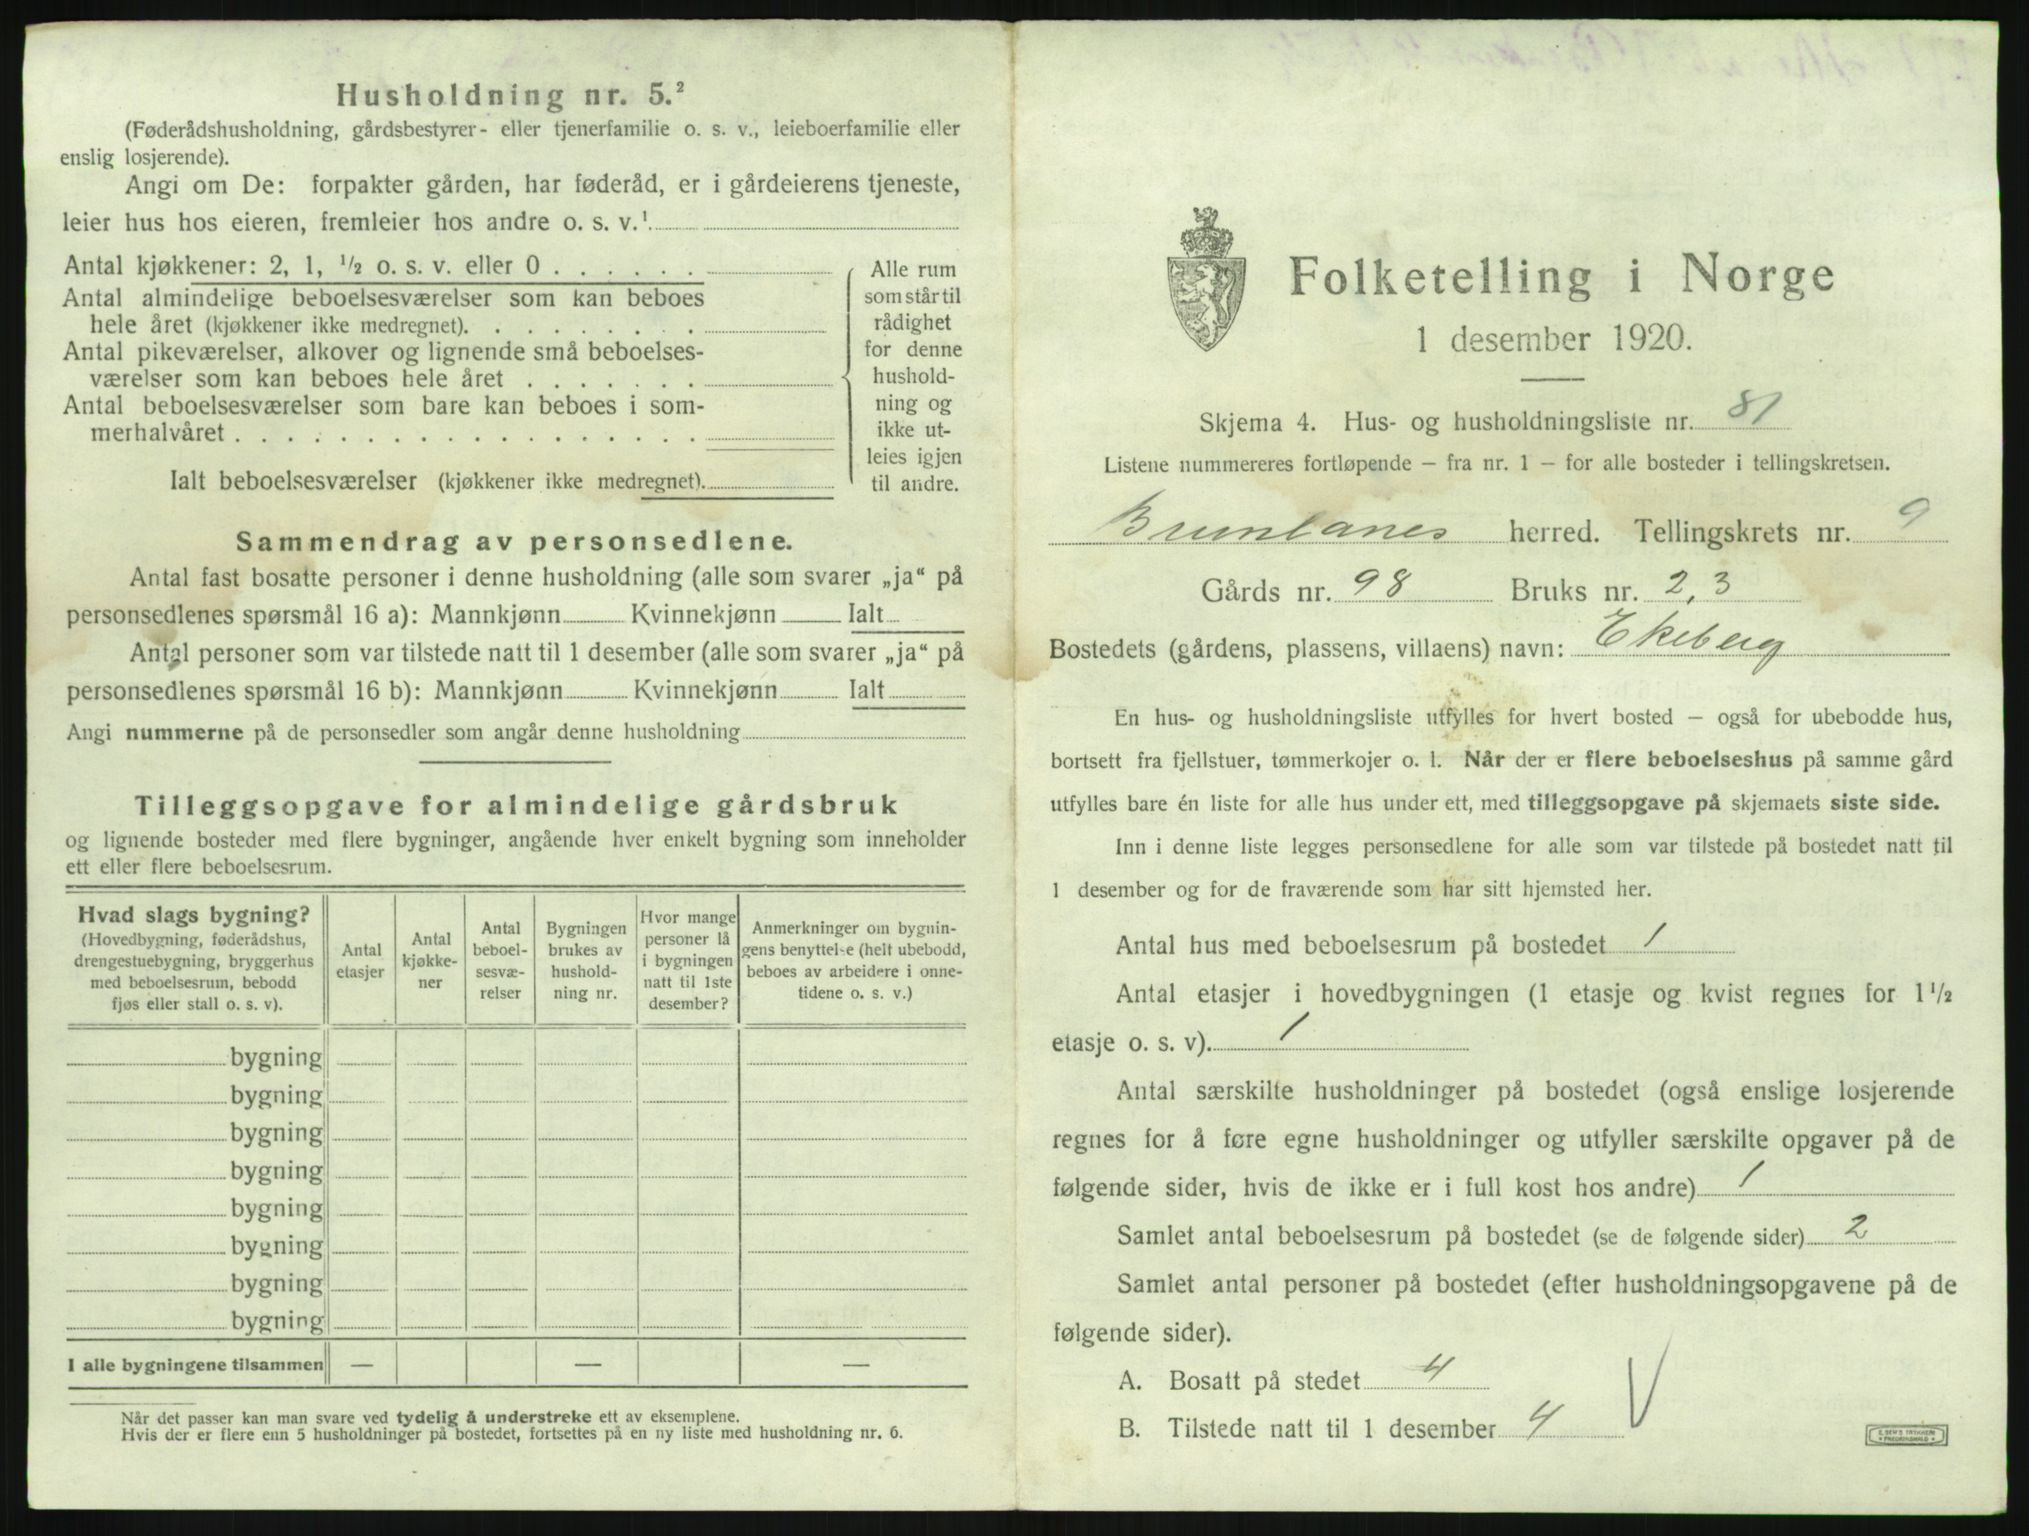 Husholdning nr. 5.²
(Føderådshusholdning, gårdsbestyrer- eller tjenerfamilie o. s. v., leieboerfamilie eller
enslig losjerende).
Angi om De: forpakter gården, har føderåd, er i gårdeierens tjeneste,
leier hus hos eieren, fremleier hos andre o. s. v.¹
Antal kjøkkener: 2, 1, ½ o. s. v. eller 0 . . . . . .
Antal almindelige beboelsesværelser som kan beboes
hele året (kjøkkener ikke medregnet). . . . . . . . .
Antal pikeværelser, alkover og lignende små beboelses-
værelser som kan beboes hele året . . . . . . .
Antal beboelsesværelser som bare kan beboes i som-
merhalvåret . . . . . . . . . . . . . . . . . .
Ialt beboelsesværelser (kjøkkener ikke medregnet).
Alle rum
som står til
rådighet
for denne
hushold-
ning og
ikke ut-
leies igjen
til andre.
Sammendrag av personsedlene.
Antal fast bosatte personer i denne husholdning (alle som svarer „ja“ på
personsedlenes spørsmål 16 a): Mannkjønn Kvinnekjønn Ialt
Antal personer som var tilstede natt til 1 desember (alle som svarer „ja“ på
personsedlenes spørsmål 16 b): Mannkjønn Kvinnekjønn Ialt
Angi nummerne på de personsedler som angår denne husholdning
Tilleggsopgave for almindelige gårdsbruk
og lignende bosteder med flere bygninger, angående hver enkelt bygning som inneholder
ett eller flere beboelsesrum.
Hvad slags bygning?
(Hovedbygning, føderådshus,
drengestuebygning, bryggerhus
med beboelsesrum, bebodd
fjøs eller stall o. s. v).
Antal
etasjer
Antal
kjøkke-
ner
Antal
beboel-
sesvæ-
relser
Bygningen
brukes av
hushold-
ning nr.
Hvor mange
personer lå
i bygningen
natt til 1ste
desember?
Anmerkninger om bygnin-
gens benyttelse (helt ubebodd,
beboes av arbeidere i onne-
tidene o. s. v.)
bygning
bygning
bygning
bygning
bygning
bygning
bygning
bygning
I alle bygningene tilsammen — — —
Når det passer kan man svare ved tydelig å understreke ett av eksemplene.
Hvis der er flere enn 5 husholdninger på bostedet, fortsettes på en ny liste med husholdning nr. 6.
Folketelling i Norge
1 desember 1920.
Skjema 4. Hus- og husholdningsliste nr. 81
Listene nummereres fortløpende — fra nr. 1 — for alle bosteder i tellingskretsen.
Brunlanes herred. Tellingskrets nr. 9
Gårds nr. 98 Bruks nr. 2, 3
Bostedets (gårdens, plassens, villaens) navn: Ekeberg
En hus- og husholdningsliste utfylles for hvert bosted — også for ubebodde hus,
bortsett fra fjellstuer, tømmerkojer o. l. Når der er flere beboelseshus på samme gård
utfylles bare én liste for alle hus under ett, med tilleggsopgave på skjemaets siste side.
Inn i denne liste legges personsedlene for alle som var tilstede på bostedet natt til
1 desember og for de fraværende som har sitt hjemsted her.
Antal hus med beboelsesrum på bostedet 1
Antal etasjer i hovedbygningen (1 etasje og kvist regnes for 1 ½
etasje o. s. v). 1
Antal særskilte husholdninger på bostedet (også enslige losjerende
regnes for å føre egne husholdninger og utfyller særskilte opgaver på de
følgende sider, hvis de ikke er i full kost hos andre) 1
Samlet antal beboelsesrum på bostedet (se de følgende sider) 2
Samlet antal personer på bostedet (efter husholdningsopgavene på de
følgende sider).
A. Bosatt på stedet 4
B. Tilstede natt til 1 desember 4